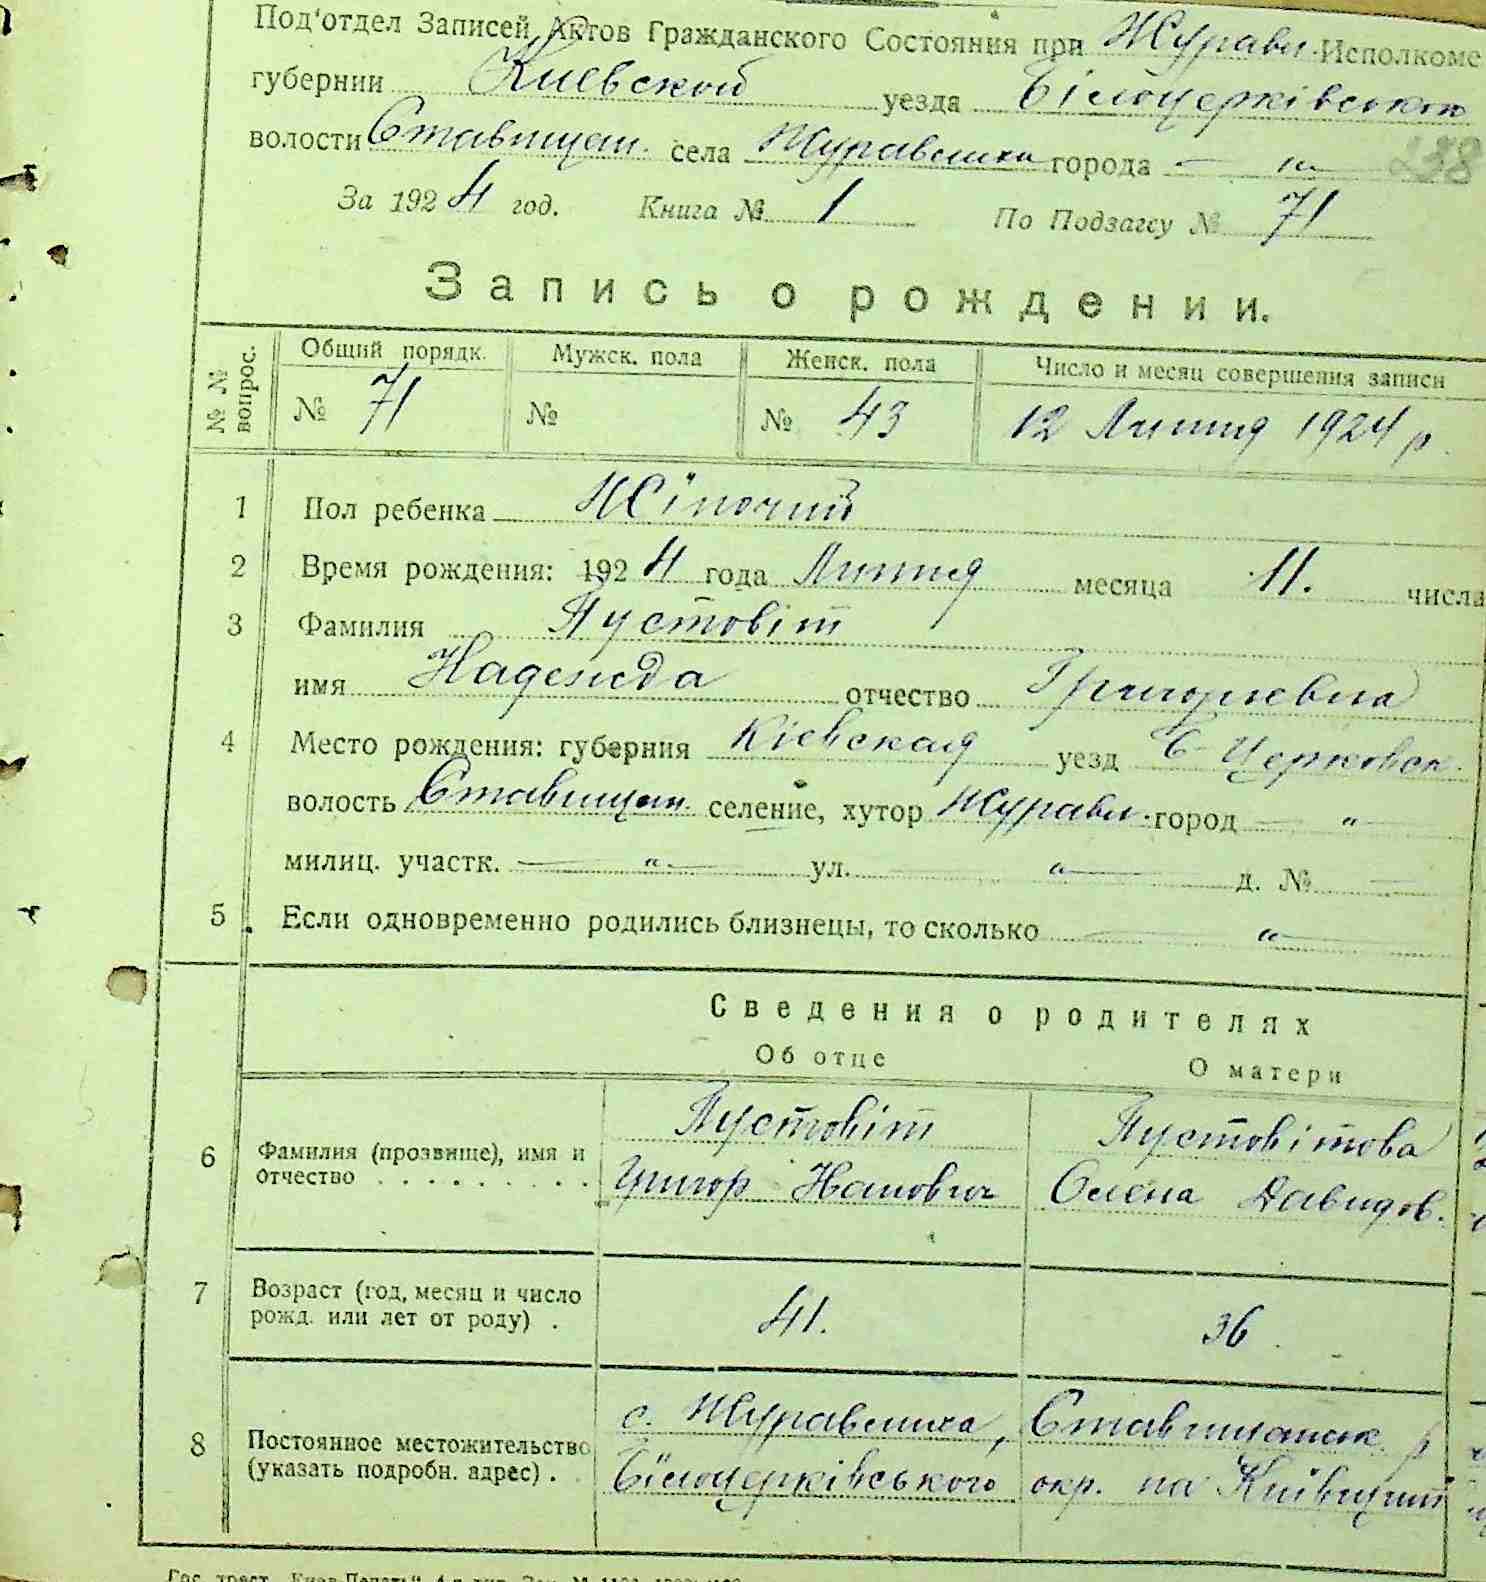 Под'отдел Записей Актов Гражданского Состояния при Журавл. Исполкоме
губернии Киевской уезда Білоцерківського
волости Ставищан. села Журавлиха города — „ — 238
За 1924 год. Книга № 1 По Подзагсу № 71
Запись о рождении.
№ № вопрос. Общий порядк. Мужск. пола Женск. пола Число и месяц совершения записи
№ 71 № № 43 12 Липця 1924 р.
1 Пол ребенка Жіночий
2 Время рождения: 1924 года Липця месяца 11. числа
3 Фамилия Пустовіт
имя Надежда отчество Григорьевна
4 Место рождения: губерния Кіевская уезд Б-Церковск.
волость Ставищан. селение, хутор Журавл. город — „
милиц. участк. — „ — ул. — „ — д. № —
5 Если одновременно родились близнецы, то сколько — „ —
Сведения о родителях
Об отце О матери
6 Фамилия (прозвище), имя и отчество . . . . . . . . .
Пустовіт Пустовітова
Григор Іванович Олена Давидов.
7 Возраст (год, месяц и число рожд. или лет от роду) . 41. 36.
8 Постоянное местожительство (указать подробн. адрес) .
с. Журавлиха, Ставищанськ. р
Білоцерківського окр. на Київщині